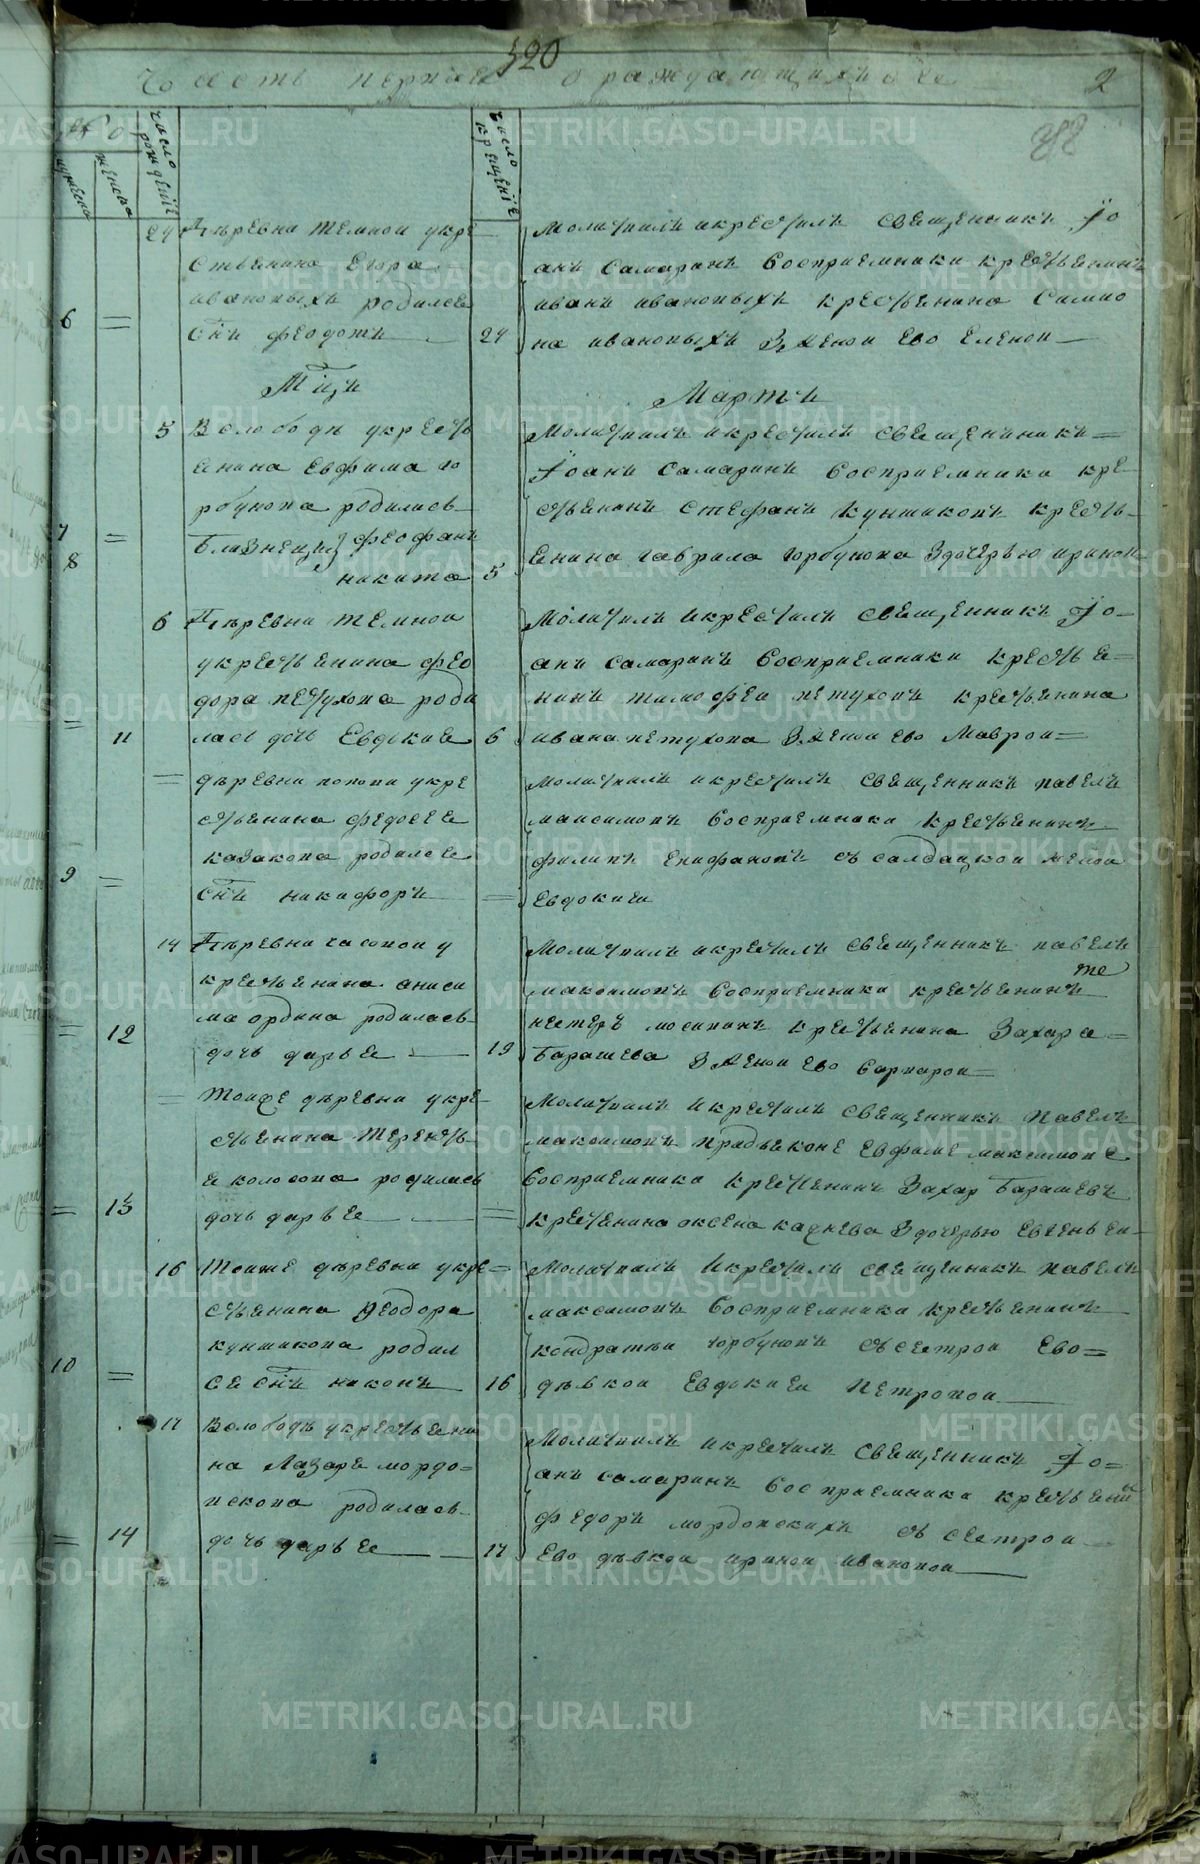 320
Часть первая о раждающихся
2
№
число рожденїя
число крещенїя
мужеска
женска
24 Деревни темнои укре
ственина Егора
ивановыхъ родился
6 = снъ феодотъ 24
Молитвилъ икрестилъ священникъ Їо
анъ Самаринъ восприемники крестьенинъ
иванъ ивановыхъ крестьенина Симио
на ивановыхъ Зженои Ево Еленои
Мцъ Мартъ
5 Вслободе укресть
енина Евфима го
рбунова родилис
7 = близнецы феофанъ
8 никита 5
Молитвилъ икрестилъ священникъ
Їоанъ Самаринъ восприемники кре
стьенинъ Стефанъ Куншиковъ кресть
Енина гаврила горбунова Здочерью иринои
6 Деревни темнои
укрестьенина фео
дора петухова роди
= 11 лась дочь Евдокие 6
Молитвилъ икрестилъ священникъ Їо
анъ Самаринъ восприемники крестье
нинъ тимофеи петуховъ крестьенина
ивана петухова Зженои ево Маврои
= деревни попови укре
стьенина федосее
казакова родился
9 = снъ никифоръ =
Молитвилъ икрестилъ священникъ павелъ
максимовъ восприемники крестьенинъ
филипъ Епифановъ съ салдацкои женои
Евдокиеи
14 Деревни часовои у
крестьенина аниси
ма ордина родилась
= 12 дочь дарье 19
Молитвилъ икрестилъ священникъ павелъ
максимовъ восприемники крестьенинъ
те
нестеръ мосининъ крестьенина Захара
Барашева Зженои ево варварои
= Тоиже деревни укре
стьенина Теренть
е колосова родилась
= 13 дочь дарье =
Молитвилъ икрестилъ священникъ павелъ
максимовъ придьеконе Евфиме максимове
восприемники крестьенинъ Захар Барашевъ
крестенина оксена каднева Здочерью Евгеньеи
16 Тоиже деревни укре
стьенина Феодора
куншикова родил
10 = се снъ никонъ 16
Молитвилъ икрестилъ священникъ павелъ
максимовъ восприемники крестьенинъ
кондратеи горбуновъ съ сестрои Ево
девкои Евдокиеи Петровои
17 Вслободе укрестьени
на Лазаре мордо
вскова родилась
= 14 дочь дарье 17
Молитвилъ икрестилъ священникъ Їо
анъ самаринъ восприемники крестьенинъ
Федоръ мордовскихъ съ сестрои
Ево девкои иринои ивановои
METRIKI.GASO-URAL.RU